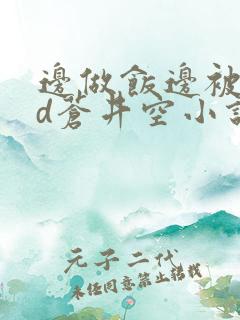 邊做飯邊被
d蒼井空小說
元子二代
未經同意禁止轉載